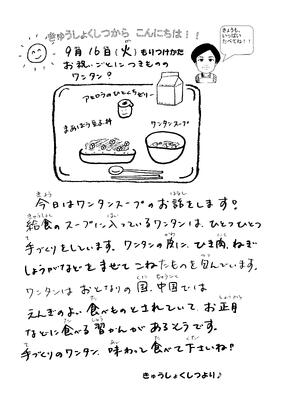 きゅうしょくしつから こんにちは!!
きょうも、
いっぱい
たべてね!!
9月16日(火)もりつけかた
お祝いごとにつきものの
ワンタン?
アセロラのひとくちゼリー
まあぼう豆腐丼
ワンタンスープ
今日はワンタンスープのお話をします?
給食のスープに入っているワンタンは、ひとつひとつ
手づくりをしています。ワンタンの皮に、ひき肉、ねぎ
しょうがなどを まぜて こねたものを包んでいます。
ワンタンは おとなりの国、中国では
えんぎのよい食べものとされていて、お正月
などに食べる習かんがあるそうです。
手づくりのワンタン、味わって食べて下さいね?
きゅうしょくしつより♪